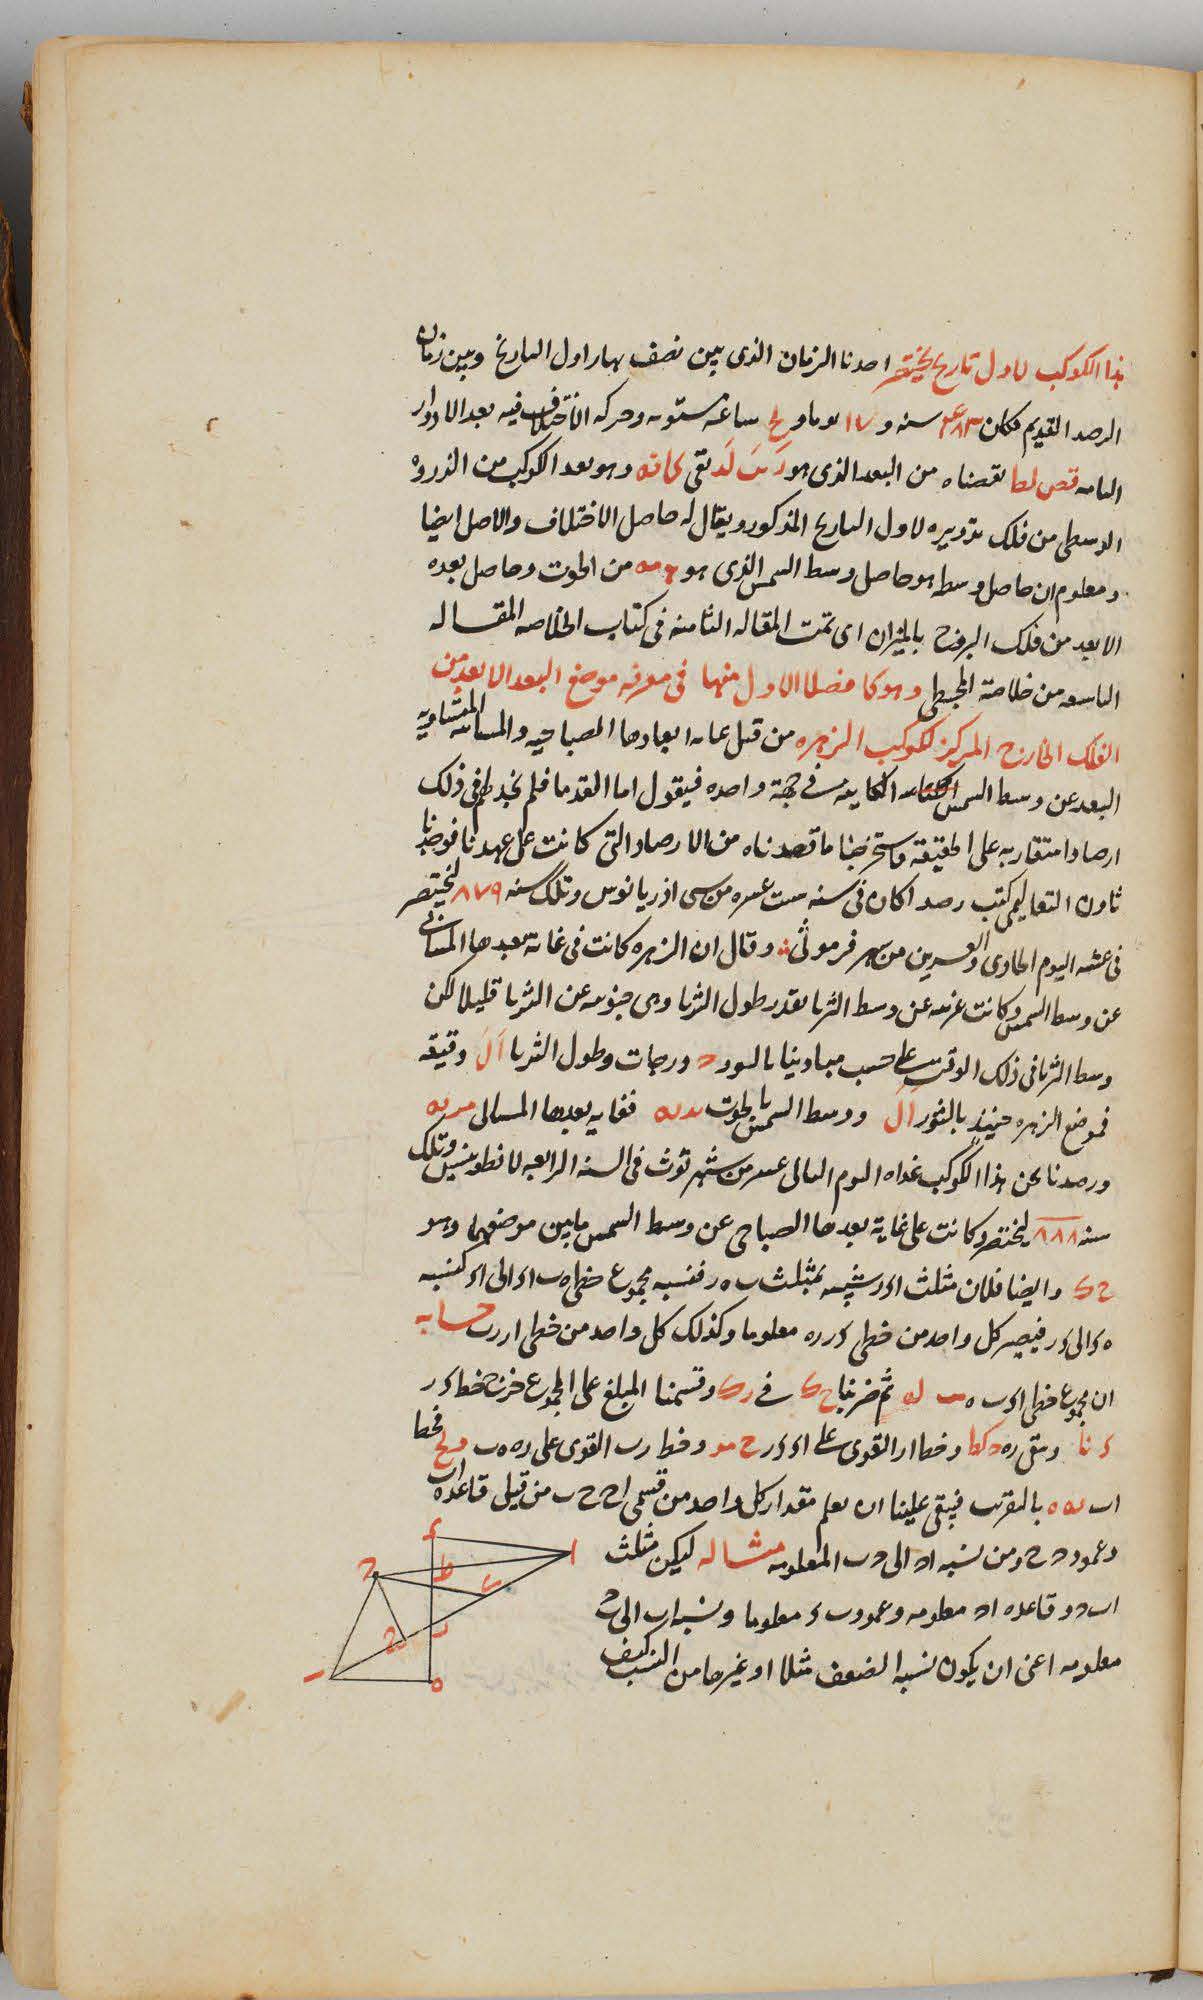 هذا الكوكب لاول تاريخ بختنصر اخذنا الزمان الذى بين نصف نهار اول التاريخ وبين زمان
الرصد القديم فكان ٤٨٣ سنه و ١٧ يوما و يح ساعة مستويه وحركه الاختلاف فيه بعد الادوار
التامه قص لط نقصناه من البعد الذى هو بقى كا نه وهو بعد الكوكب من الذروه
الوسطى من فلك تدويره لاول التاريخ المذكور ويقال له حاصل الاختلاف والاصل ايضا
ومعلوم ان حاصل وسطه هو حاصل وسط الشمس الذى هو مه من الحوت وحاصل بعده
الابعد من فلك البروج بالميزان اى تمت المقاله الثامنه فى كتاب الخلاصه المقاله
التاسعه من خلاصة المجسطى وهو كا فصلا الاول منها فى معرفه موضع البعد الابعد من
الفلك الخارج المركز لكوكب الزهره من قبل غايه ابعادها الصباحيه والمسائيه المتساويه
البعد عن وسط الشمس الكاينه فى جهة واحده فيقول اما القدما فلم نجد لهم فى ذلك
ارصادا متقاربه على الحقيقه فاستخرجنا ما قصدناه من الارصاد التى كانت على عهدنا فوجدنا
ثاون التعاليمى كتب رصدا كان فى سنه ست عشره من سى اذريانوس وتلك سنه ٨٧٩ لبختنصر
فى عشيه اليوم الحادى والعشرين من شهر فرموثى وقال ان الزهره كانت فى غايه بعدها المسائى
عن وسط الشمس وكانت غربيه عن وسط الثريا بقدر طول الثريا وهى جنوبيه عن الثريا قليلا لكن
وسط الثريا فى ذلك الوقت على حسب مبادينا بالثور درجات وطول الثريا ا ل دقيقه
فموضع الزهره حينئذ بالثور ا ل ووسط الشمس بالحوت يد يه فغايه بعدها المسائى مز يه
ورصدنا نحن هذا الكوكب غداه اليوم الثانى عشر من شهر توث فى السنه الرابعه لانطونينس وتلك
سنه ٨٨٨ لبختنصر وكانت على غاية بعدها الصباحى عن وسط الشمس ما بين موضعهما وهو
ح ك وايضا فلان مثلث ا ر شبيه بمثلث ب ه ر فنسبه مجموع خطى ه ب ا ك الى ا ك كنسبه
ه ك الى ك ر فيصير كل واحد من خطى ك ر ر ه معلوما وكذلك كل واحد من خطى ا ر ر ب حسابه
ان مجموع خطى ا ك ب ه لو ثم ضربنا ح ك فى وقسمنا المبلغ على المجموع خرج خط ك ر
ك نا وبقى ر ه وخط ا ر القوى على ا ك ك ر ح مو وخط ر ب القوى على ر ه ه ب و لح فخط
ا ب يه ه بالتقريب فبقى علينا ان نعلم مقدار كل واحد من قسمى ا ح ح ب من قبل قاعده ا ب
وعمود ج ح ومن نسبه ا ج الى ج ب المعلومه مثاله ليكن مثلث
ا ب د وقاعده ا د معلومه وعمود ب ك معلوما ونسبه ا ب الى
معلومه اعنى ان يكون نسبه الضعف مثلا او غيرها من النسب كيف